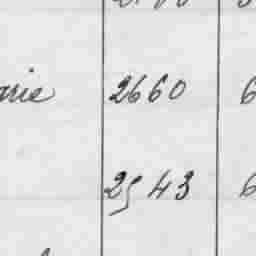 arie 2660 6
2543 6